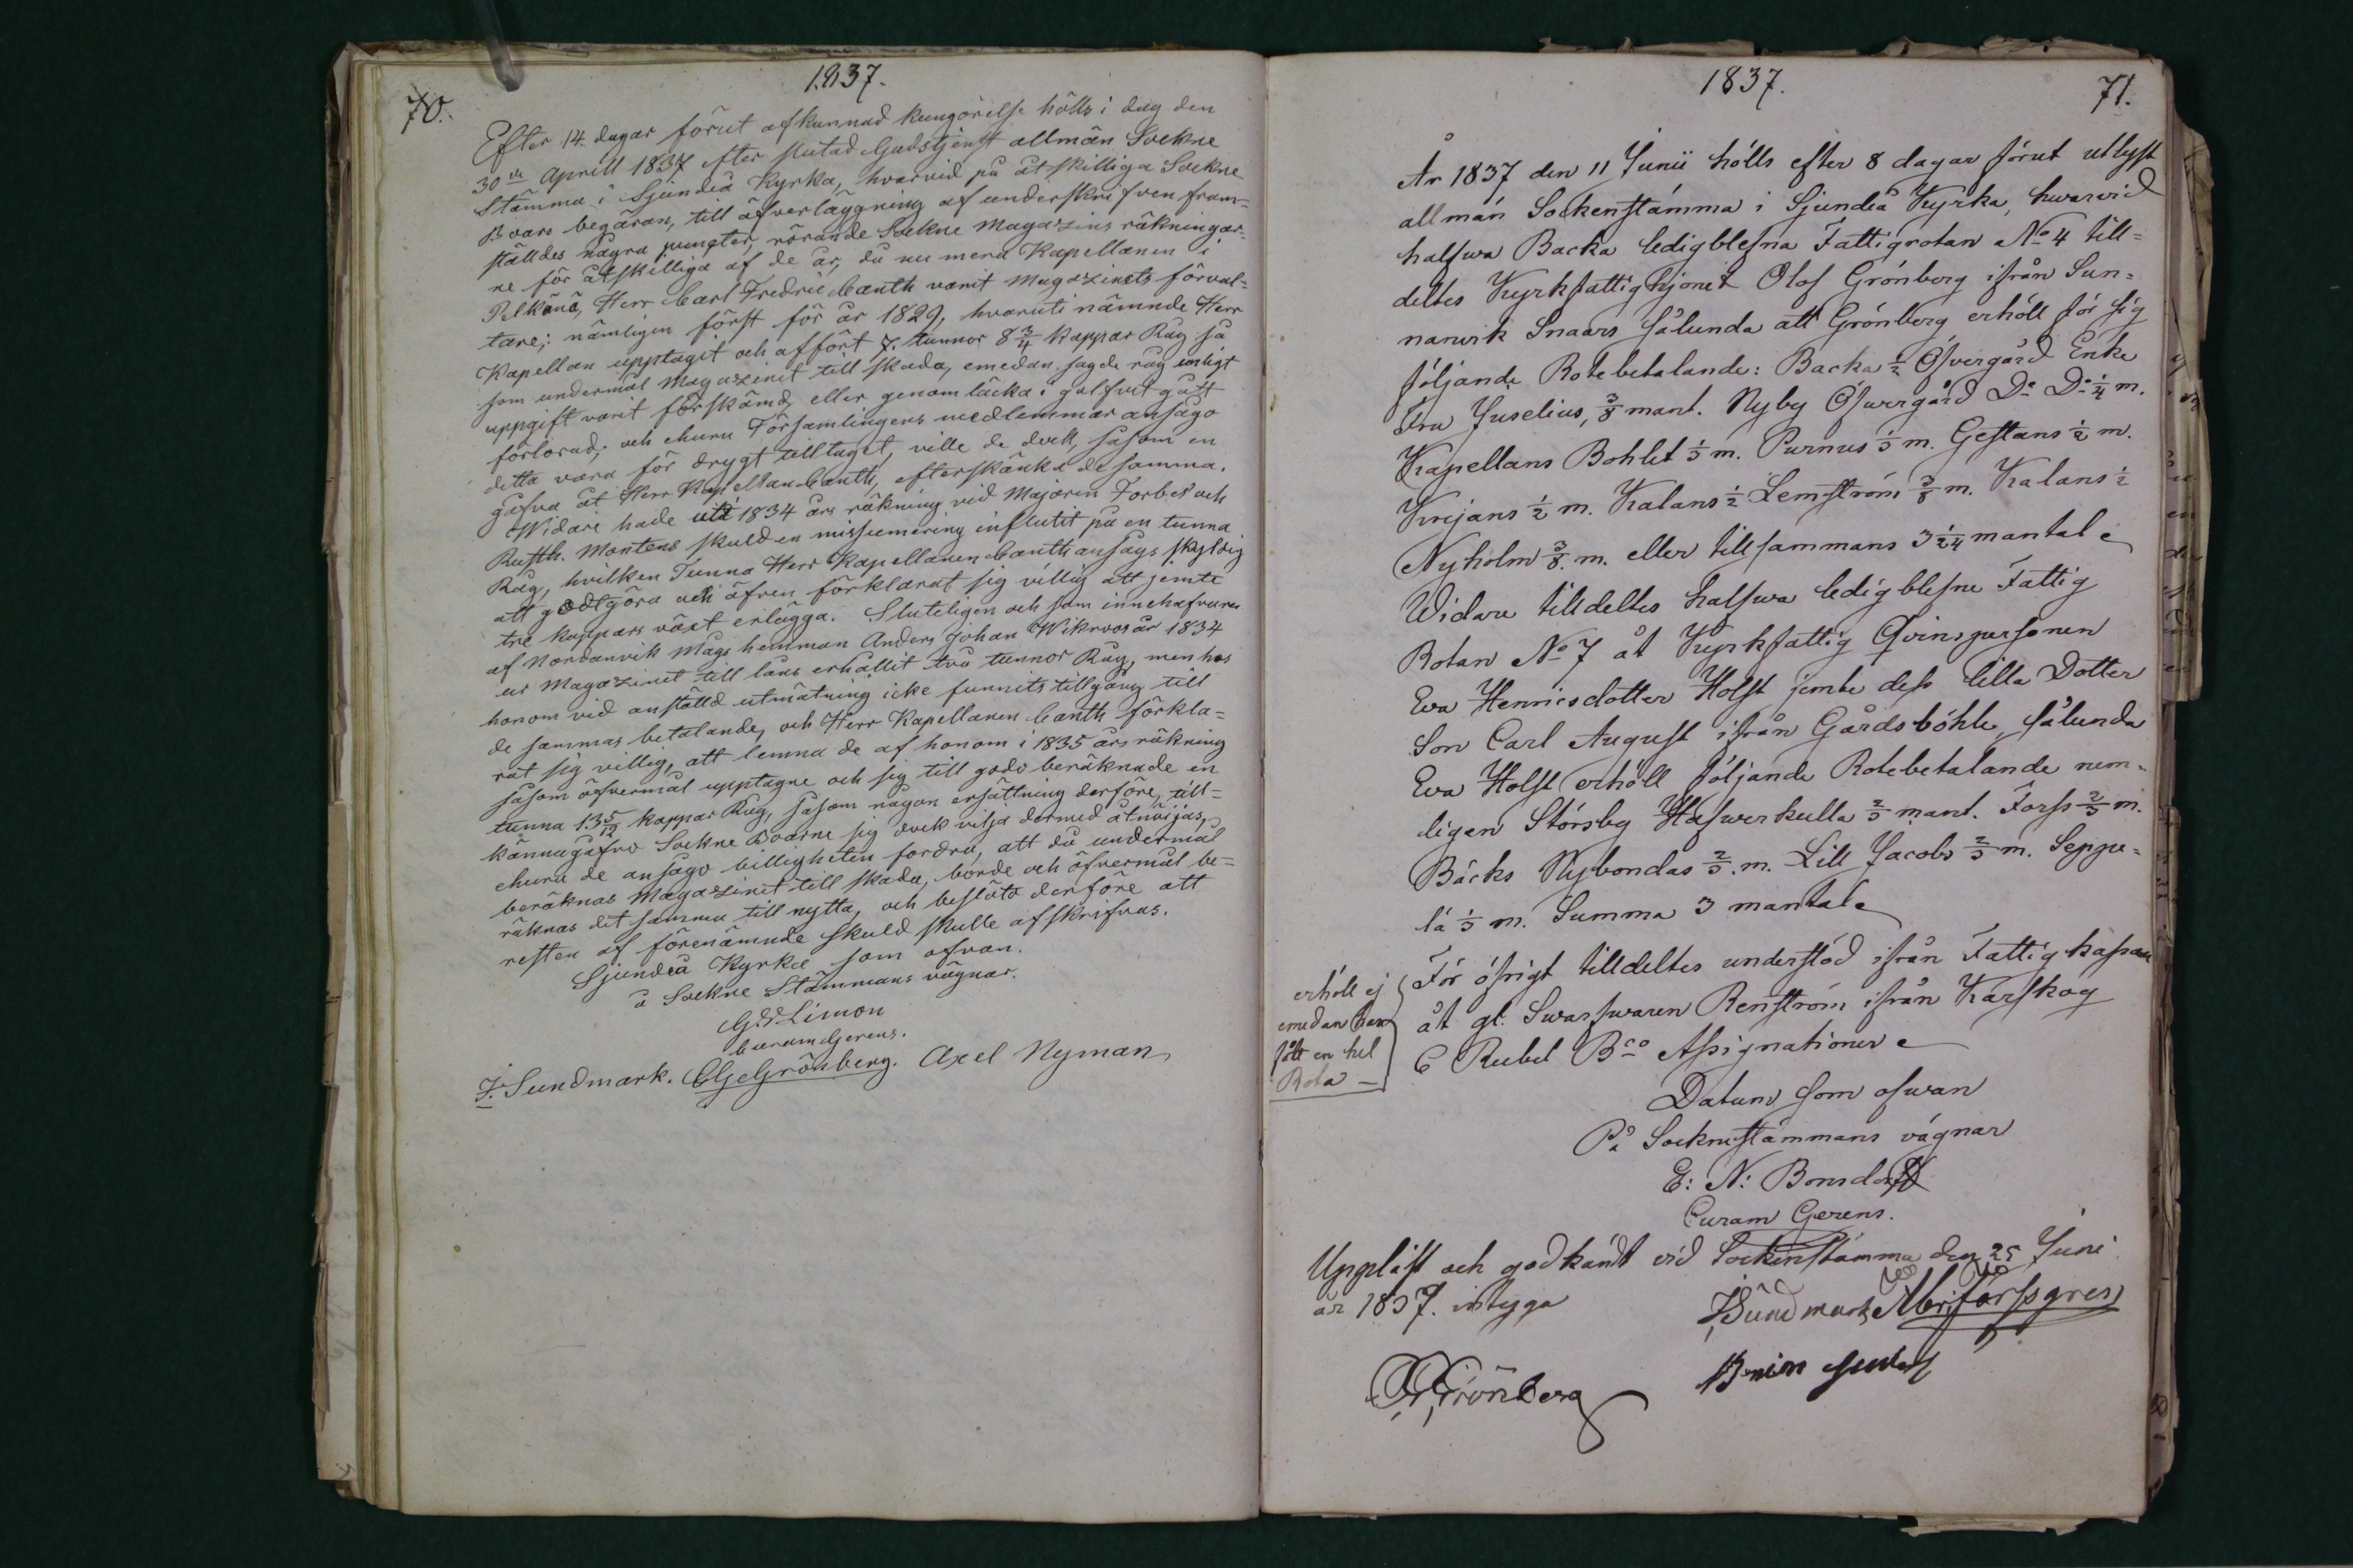 1837.
70.
Efter 14. dagar förut afkunnad kungörelse hölls i dag den
30de Aprill 1837 efter slutad Gudstjenst allmän Sockne
Stämma i Sjundeå Kyrka, hvarvid på åtskilliga Sockne
Boars begäran, till öfverläggning af underskrifven fram=
ställdes några puncter, rörande Sockne Magazins räkningar=
ne för åtskilliga af de år, då nu mera Kapellanen i
Pelkäne, Herr Carl Fredric Canth varit Magazinets förval=
tare; nämligen först för år 1829, hvaruti nämnde Herr
Kapellan upptagit och affört 7. tunnor 8 3/4 kappar Råg så
som undermål Magazinet till skada, emedan sagde råg enligt
uppgift varit förskämd, eller genom läcka i golfvet gått
förlorad; och ehuru Församlingens medlemmar ansågo
detta vara för drygt tilltaget, ville de dock, såsom en
gåfva åt Herr Kapellan Canth, efterskänka de samma.
Widare hade uti 1834 års räkning vid Majoren Forbes och
Rusth. Montens skulden missumering influtit på en tunna
Råg, hvilken Tunna Herr Kapellanen Canth ansågs skyldig
att godtgöra och äfven förklarat sig villig att jemte
tre kappars växt erlägga. Sluteligen och som innehafvaren
af Nordanvik Mågs hemman Anders Johan Wikroos år 1834
ur Magazinet till låns erhållit två tunnor Råg, men hos
honom vid anställd utmätning icke funnits tillgång till
de sammas betalande, och Herr Kapellanen Canth förkla=
rat sig villig, att lemna de af honom i 1835 års räkning
såsom öfvermål upptagne och sig till godo beräknade en
tunna 13 5/12 kappar Råg, såsom någon ersättning derföre, till=
kännagåfvo Sockne Boarne sig dock vilja dermed åtnöjas,
ehuru de ansågo billigheten fordra, att då undermål
beräknas Magazinet till skada, borde och öfvermål be=
räknas det samma till nytta, och beslöto derföre att
resten af förenämnde skuld skulle afskrifvas.
Sjundeå Kyrka som ofvan.
å Sockne Stämmans vägnar.
G. Limon
Curam Gerens.
F. Sundmark. C G Grönberg. Axel Nyman
1837.
71.
År 1837 den 11 Junii hölls efter 8 dagar förut utlyst
allmän Sockenstämma i Sjundeå Kyrka, hwarwid
halfwa Backa ledigblefna Fattigrotan No 4 till=
deltes Kyrkfattighjonet Olof Grönberg ifrån Sun=
narwik Snaars sålunda att Grönberg erhöll för sig
följande Rotebetalande: Backa 1/2 Öfvergård Enke
Fru Juselius, 3/8 mant. Nyby Öfwergård Do Do 1/4 m.
Kapellans Bohlet 1/3 m. Purnus 1/3 m. Gestans 1/2 m.
Krejans 1/2 m. Kalans 1/2 Lemström 3/8 m. Kalans 1/2
Nyholm 3/8. m. eller tillsammans 3 1/24 mantal
Widare tilldeltes halfwa ledigblefne Fattig
Rotan No 7 åt Kyrkfattig Qvinspersonen
Eva Henricsdotter Holst jemte dess lilla Dotter
Son Carl August ifrån Gårdsböhle, sålunda
Eva Holst erhöll följande Rotebetalande nem=
ligen Störsby Hafwerkulla 2/3 mant. Forss 2/3 m.
Bäcks Nybondas 2/3. m. Lill Jacobs 2/3 m. Seppä=
lä 1/3 m. Summa 3 mantal
För öfrigt tilldeltes understöd ifrån Fattig kassan
åt gl. Swarfwaren Renström ifrån Karskog
6 Rubel Bco Assignationer
erhöll ej
emedan han
fått en hel
Rota
Datum som ofwan
På Socknestämmans vägnar
E: N: Bonsdorff
Curam Gerens.
Uppläst och godkändt vid Sockenstämma den 25 Juni
år 1837. intyga
F Sundmark
Grönberg